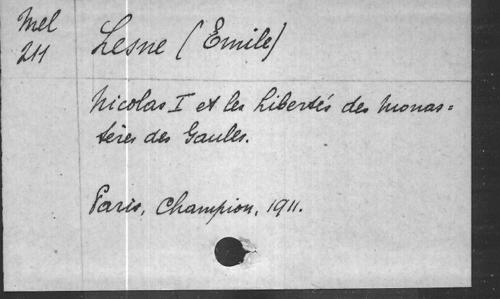 Mel
211
Lesne (Emile)
Nicolas I et les Libertés des Monas=
tères des Gaules.
Paris, Champion, 1911.